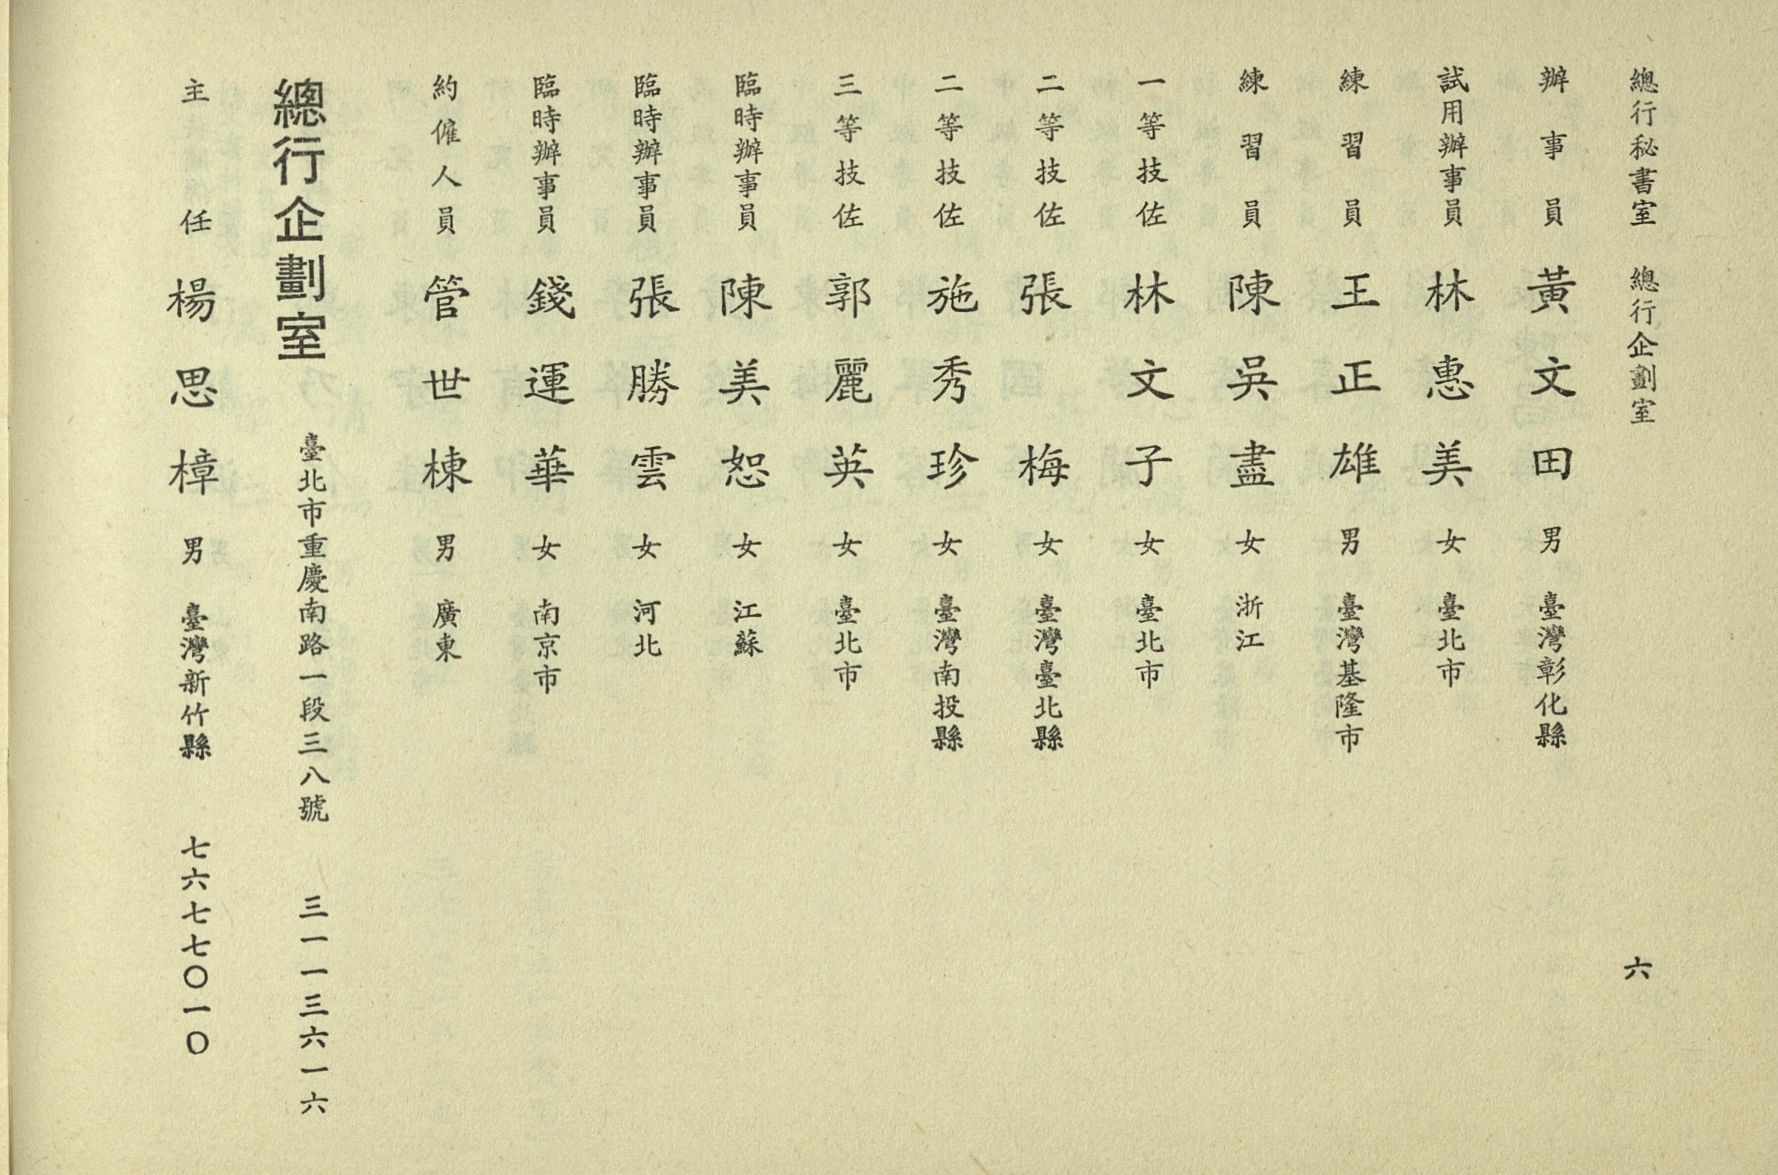 總行秘書室 總行企劃室 六
辦事員 黃文田 男 臺灣彰化縣
試用辦事員 林惠美 女 臺北市
練習員 王正雄 男 臺灣基隆市
練習員 陳吳盡 女 浙江
一等技佐 林文子 女 臺北市
二等技佐 張梅 女 臺灣臺北縣
二等技佐 施秀珍 女 臺灣南投縣
三等技佐 郭麗英 女 臺北市
臨時辦事員 陳美恕 女 江蘇
臨時辦事員 張勝雲 女 河北
臨時辦事員 錢運華 女 南京市
約僱人員 管世棟 男 廣東
總行企劃室 臺北市重慶南路一段三八號 三一一三六一六
主任 楊思樟 男 臺灣新竹縣 七六七七〇一〇